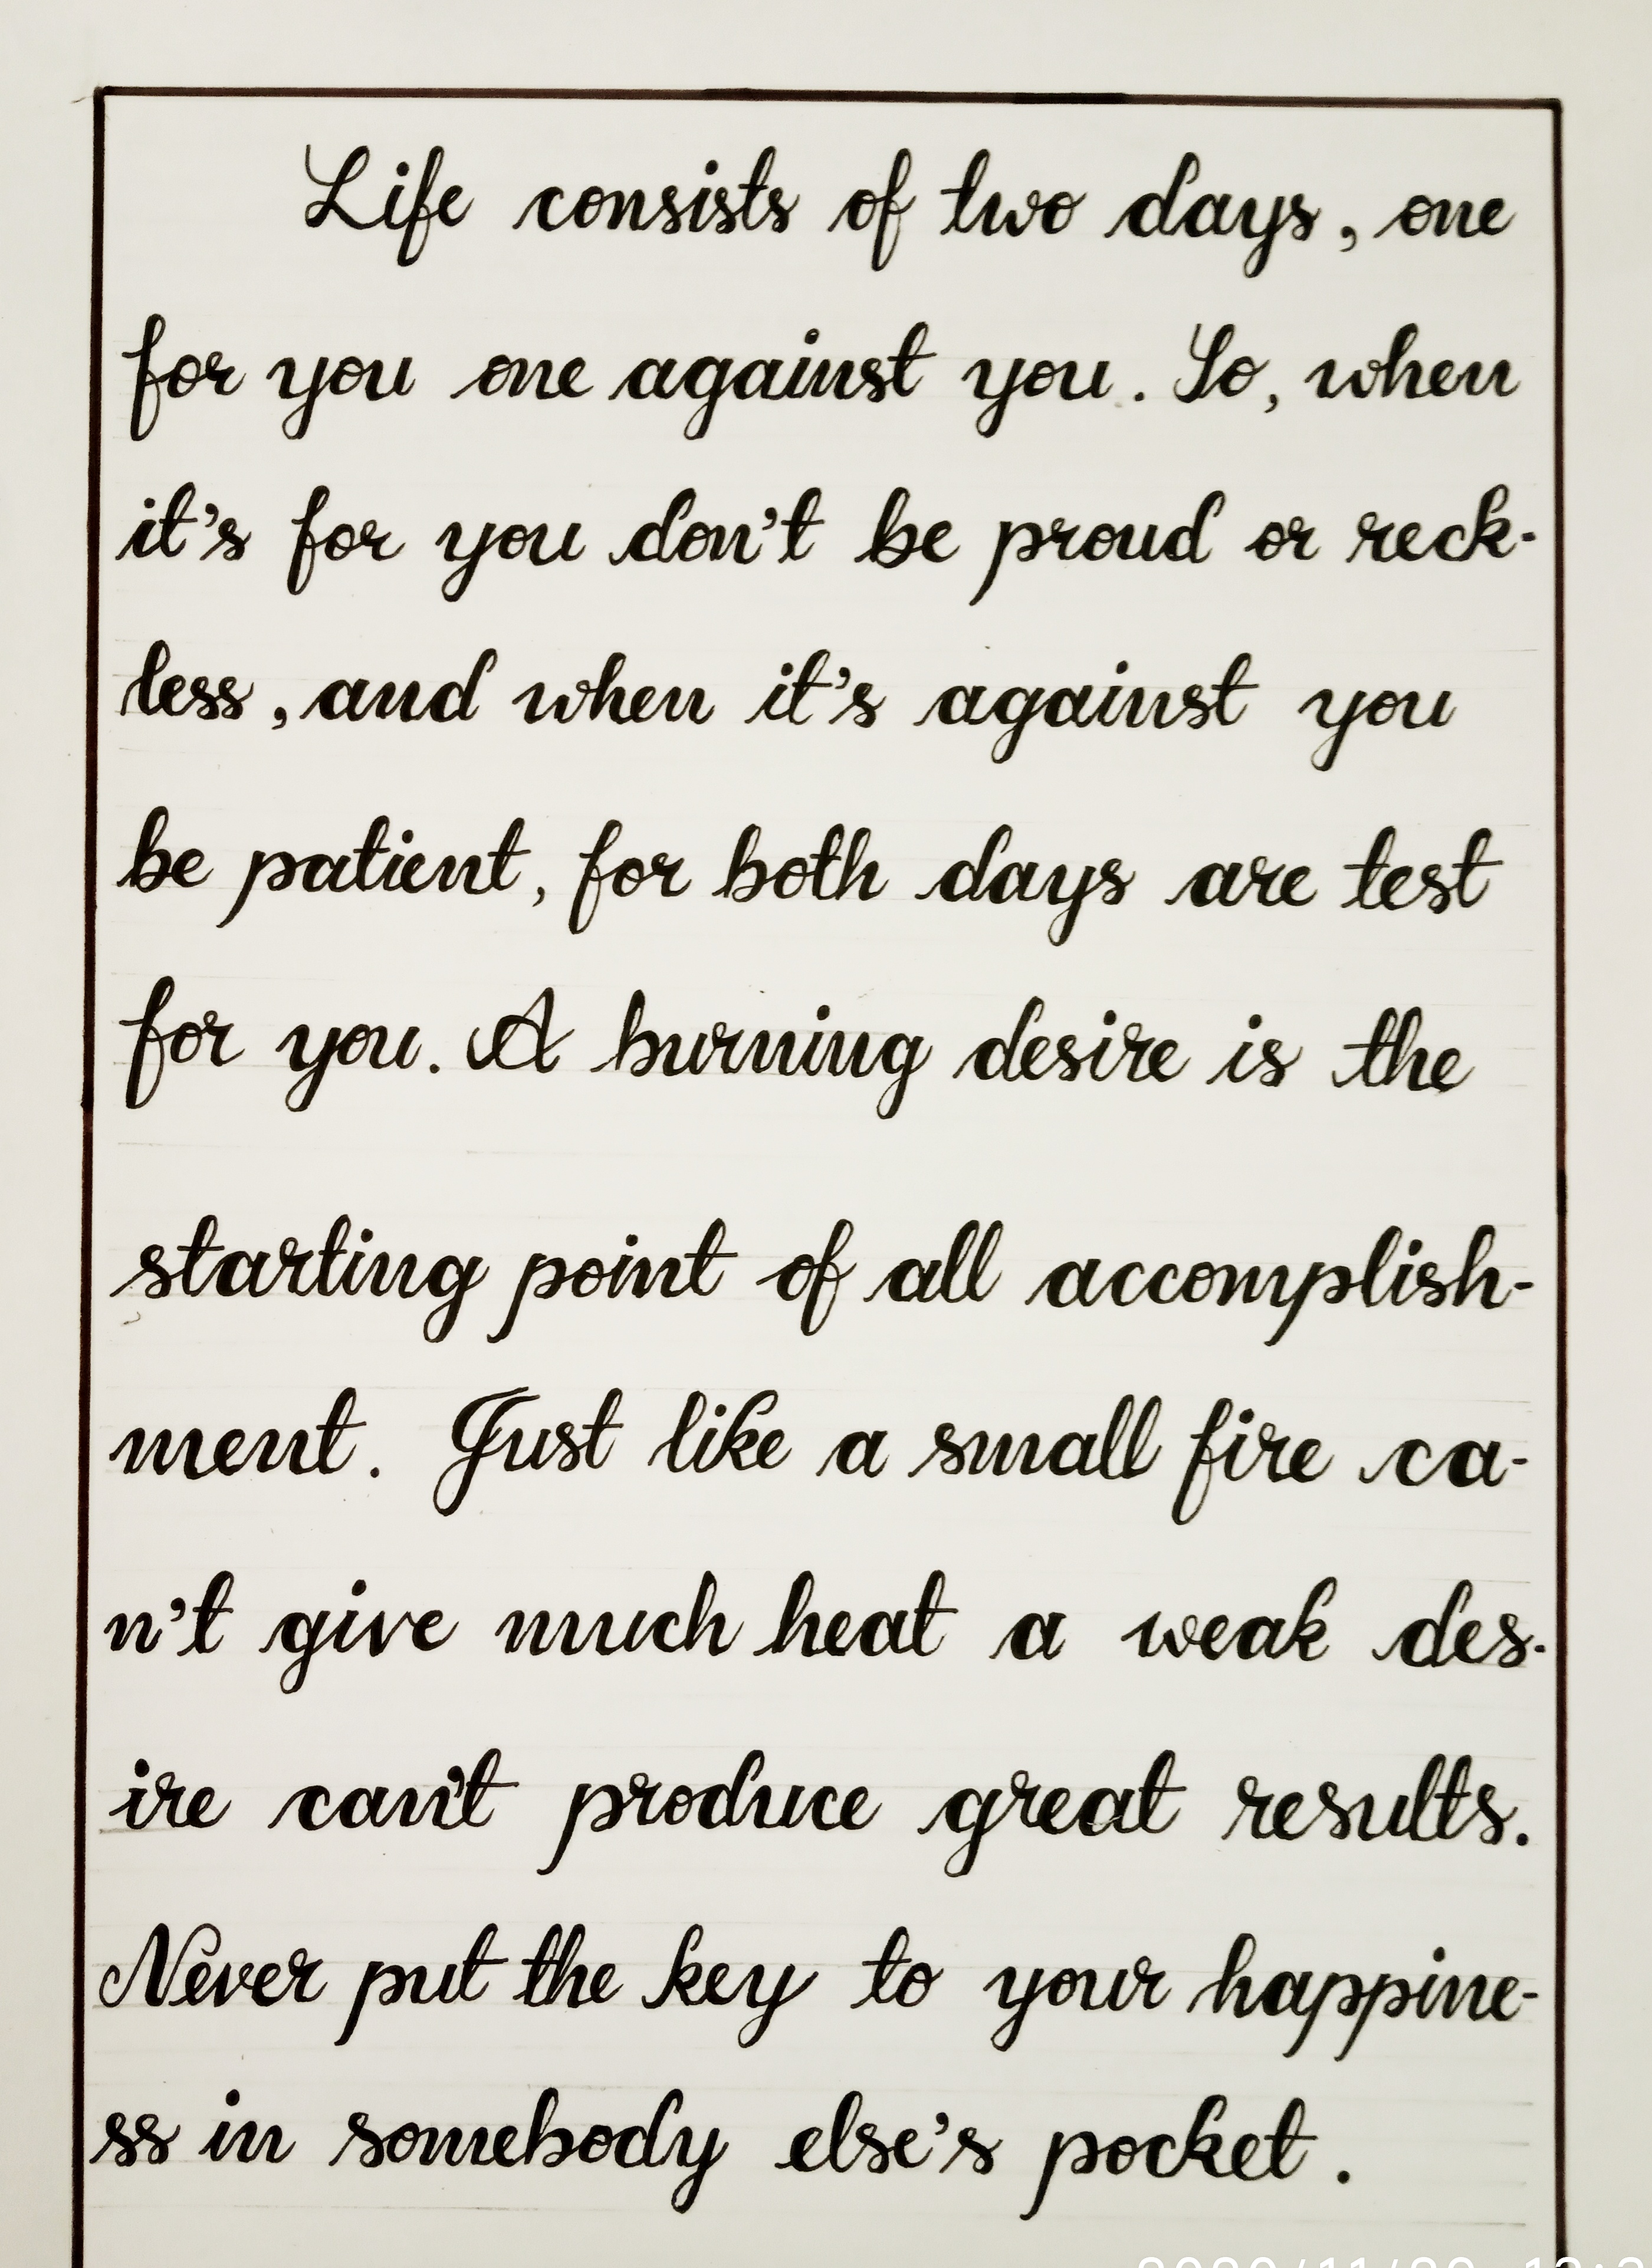 Life consists of two days, one
for you one against you. So, when
it's for you don't be proud or reck-
less, and when it's against you
be patient, for both days are test
for you. A burning desire is the
starting point of all accomplish-
ment. Just like a small fire ca-
n't give much heat a weak des-
ire can't produce great results.
Never put the key to your happine-
ss in somebody else's pocket.